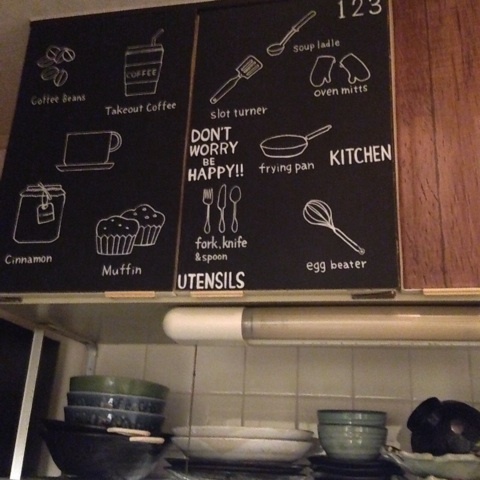 123
Coffee Beans
COFFEE
Takeout Coffee
Soup ladle
oven mitts
slot turner
DON'T
WORRY
BE
HAPPY!!
frying pan
KITCHEN
Cinnamon
Muffin
fork, knife
& spoon
egg beater
UTENSILS